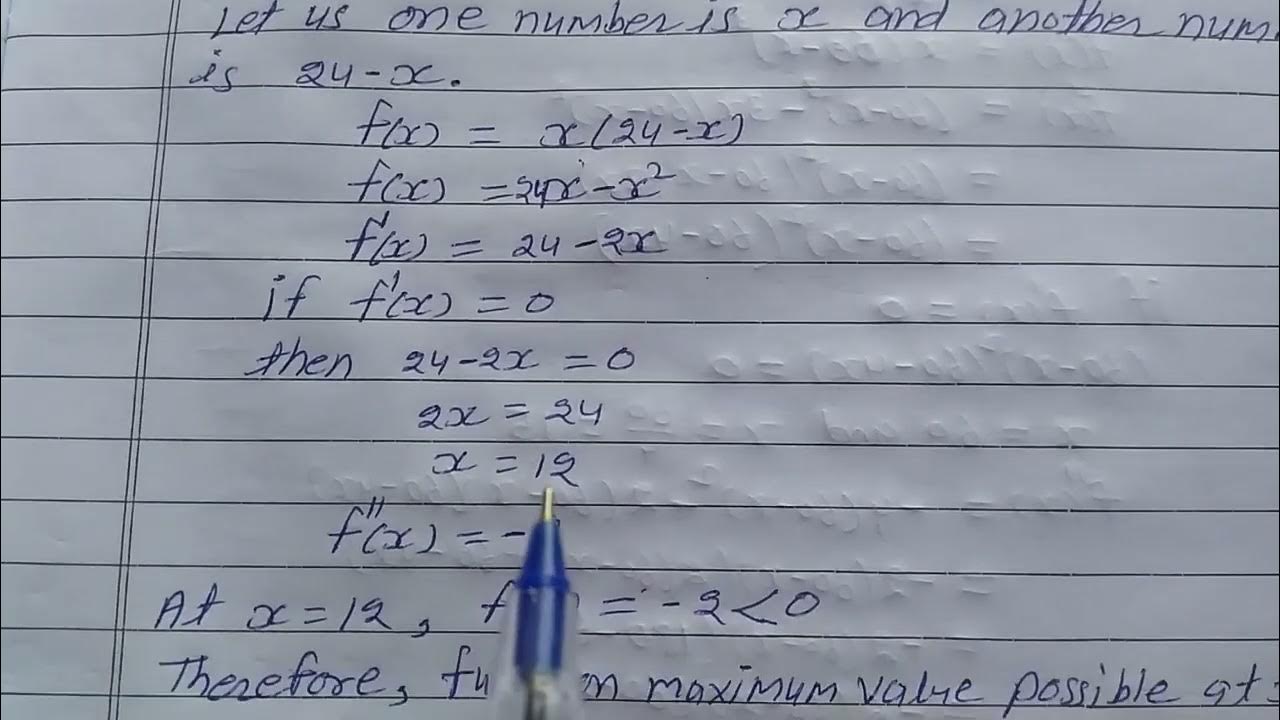 Let us one number is x and another num
is 24-x.
f(x) = x(24-x)
f(x) = 24x-x²
f'(x) = 24-2x
if f'(x) = 0
then 24-2x = 0
2x = 24
x = 12
f''(x) = -
At x=12, f = -2<0
Therefore, maximum value possible at